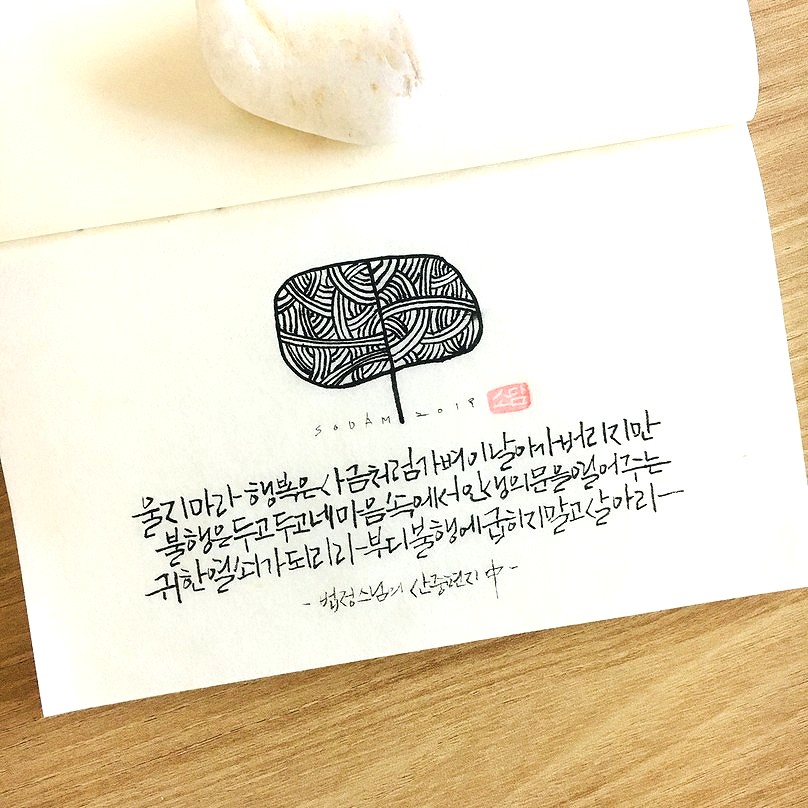 SODAM 2019
소담
울지마라 행복은 사금처럼 가벼이 날아가 버리지만
불행은 두고두고 네 마음 속에서 인생의 문을 열어주는
귀한 열쇠가 되리라 부디 불행에 굽히지 말고 살아라
- 법정스님의 산중편지 中 -